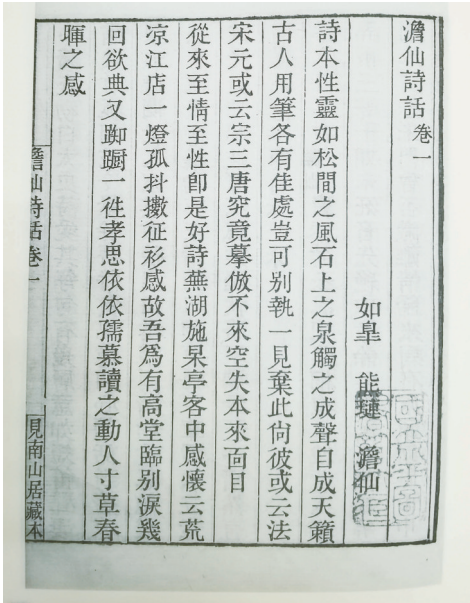 澹仙詩話 卷一
如皐 熊璉 澹仙
詩本性靈如松間之風石上之泉觸之成聲自成天籟
古人用筆各有佳處豈可別執一見棄此尙彼或云法
宋元或云宗三唐究竟摹倣不來空失本來面目
從來至情至性卽是好詩蕪湖施杲亭客中感懷云荒
凉江店一燈孤抖擻征衫感故吾爲有高堂臨别淚幾
回欲典又踟蹰一徃孝思依依孺慕讀之動人寸草春
暉之感
澹仙詩話卷一
見南山居藏本